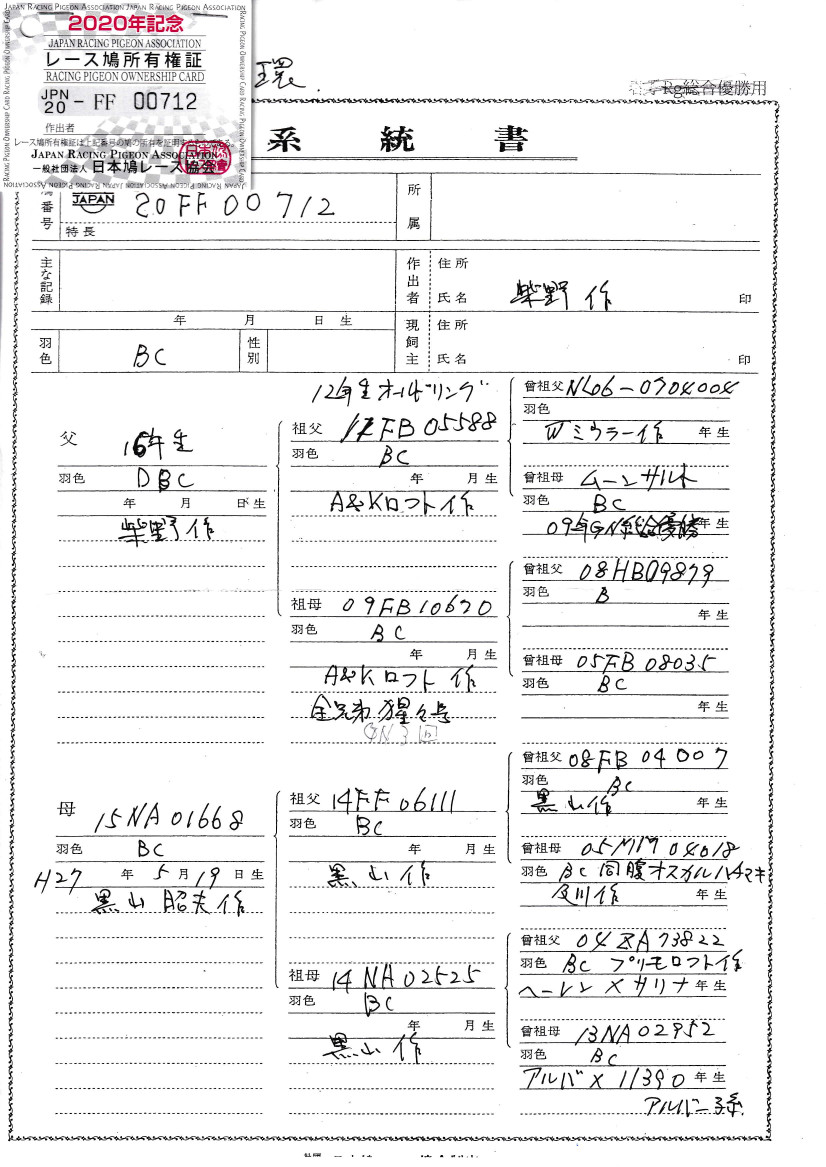 JAPAN RACING PIGEON ASSOCIATION JAPAN RACING PIGEON ASSOCIATION
2020年記念
JAPAN RACING PIGEON ASSOCIATION
レース鳩所有権証
RACING PIGEON OWNERSHIP CARD
JPN
20 - FF 00712
作出者
レース鳩所有権証は上記番号の鳩の所有を証明するものである。
JAPAN RACING PIGEON ASSOCIATION
一般社団法人 日本鳩レース協会
環
Rg総合優勝用
系統書
番号
JAPAN 20FF00712
特長
所属
主な記録
年 月 日生
作出者
住所
氏名 柴野作 印
羽色 BC
性別
現飼主
住所
氏名 印
父 16年生
羽色 DBC
年 月 日生
柴野作
12年生オールドリング
祖父 12FB05588
羽色 BC
年 月生
A&Kロフト作
祖母 09FB10670
羽色 BC
年 月生
A&Kロフト作
全兄弟 猩々号
GN3回
曾祖父 NL06-0704004
羽色
Wミウラー作 年生
曾祖母 ムーンサルト
羽色 BC
09年GN総合優勝 年生
曾祖父 08HB09879
羽色 B
年生
曾祖母 05FB08035
羽色 BC
年生
母 15NA01668
羽色 BC
H27 年 5月19日生
黒山昭夫作
祖父 14FF06111
羽色 BC
年 月生
黒山作
祖母 14NA02525
羽色 BC
年 月生
黒山作
曾祖父 08FB04007
羽色 BC
黒山作 年生
曾祖母 05MM04018
羽色 BC 同腹オスカルハチマキ
及川作 年生
曾祖父 04ZA73822
羽色 BC プリモロフト作
ヘーレン×サリナ 年生
曾祖母 13NA02952
羽色 BC
アルバ×11390 年生
アルバー子系